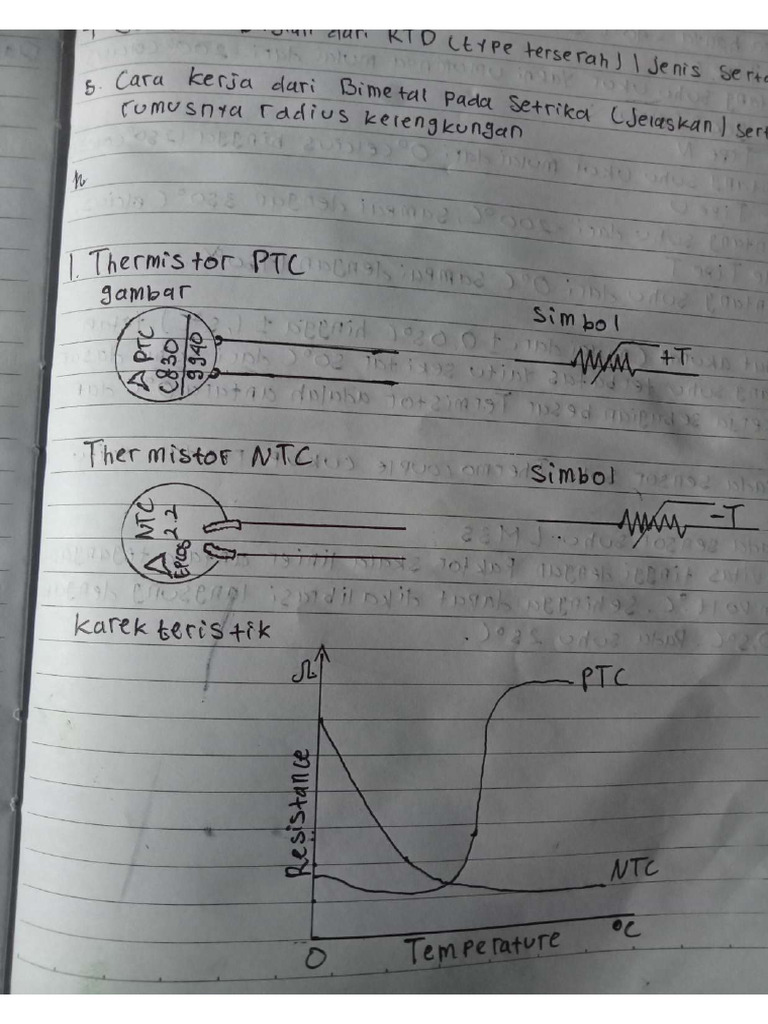 dari RTD (type terserah) Jenis serta
5. Cara kerja dari Bimetal pada setrika (Jelaskan) sert
rumusnya radius kelengkungan
1. Thermistor PTC
gambar
Simbol
PTC
C830
9940
+T
Thermistor NTC
Simbol
NTC
2.2
EPCOS
-T
karekteristik
Ω
PTC
Resistance
NTC
0
Temperature
°C